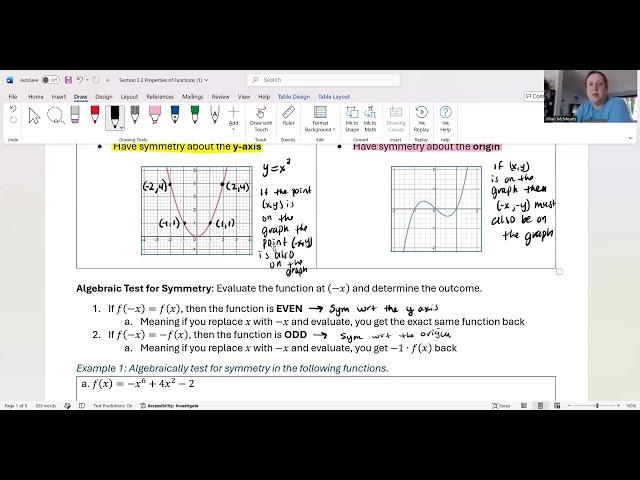 AutoSave Off
Section 3.3 Properties of Functions (1)
Search
File Home Insert Draw Design Layout References Mailings Review View Help Table Design Table Layout
Add
Draw with Touch
Ruler
Format Background
Ink to Shape
Ink to Math
Ink Replay
Drawing Tools
Touch
Stencils
Convert
Replay
Have symmetry about the y-axis
Have symmetry about the origin
y=x²
(-2,4)
(2,4)
(-1,1)
(1,1)
If the point
(x,y) is
on the
graph the
point (-x,y)
is also
on the
graph
if (x,y)
is on the
graph then
(-x,-y) must
also be on
the graph
Algebraic Test for Symmetry: Evaluate the function at (−x) and determine the outcome.
1. If f(−x) = f(x), then the function is EVEN → Sym wrt the y axis
a. Meaning if you replace x with −x and evaluate, you get the exact same function back
2. If f(−x) = −f(x), then the function is ODD → Sym wrt the origin
a. Meaning if you replace x with −x and evaluate, you get −1 · f(x) back
Example 1: Algebraically test for symmetry in the following functions.
a. f(x) = −x⁶ + 4x² − 2
Page 1 of 5 859 words Text Predictions: On Accessibility: Investigate Focus 160%